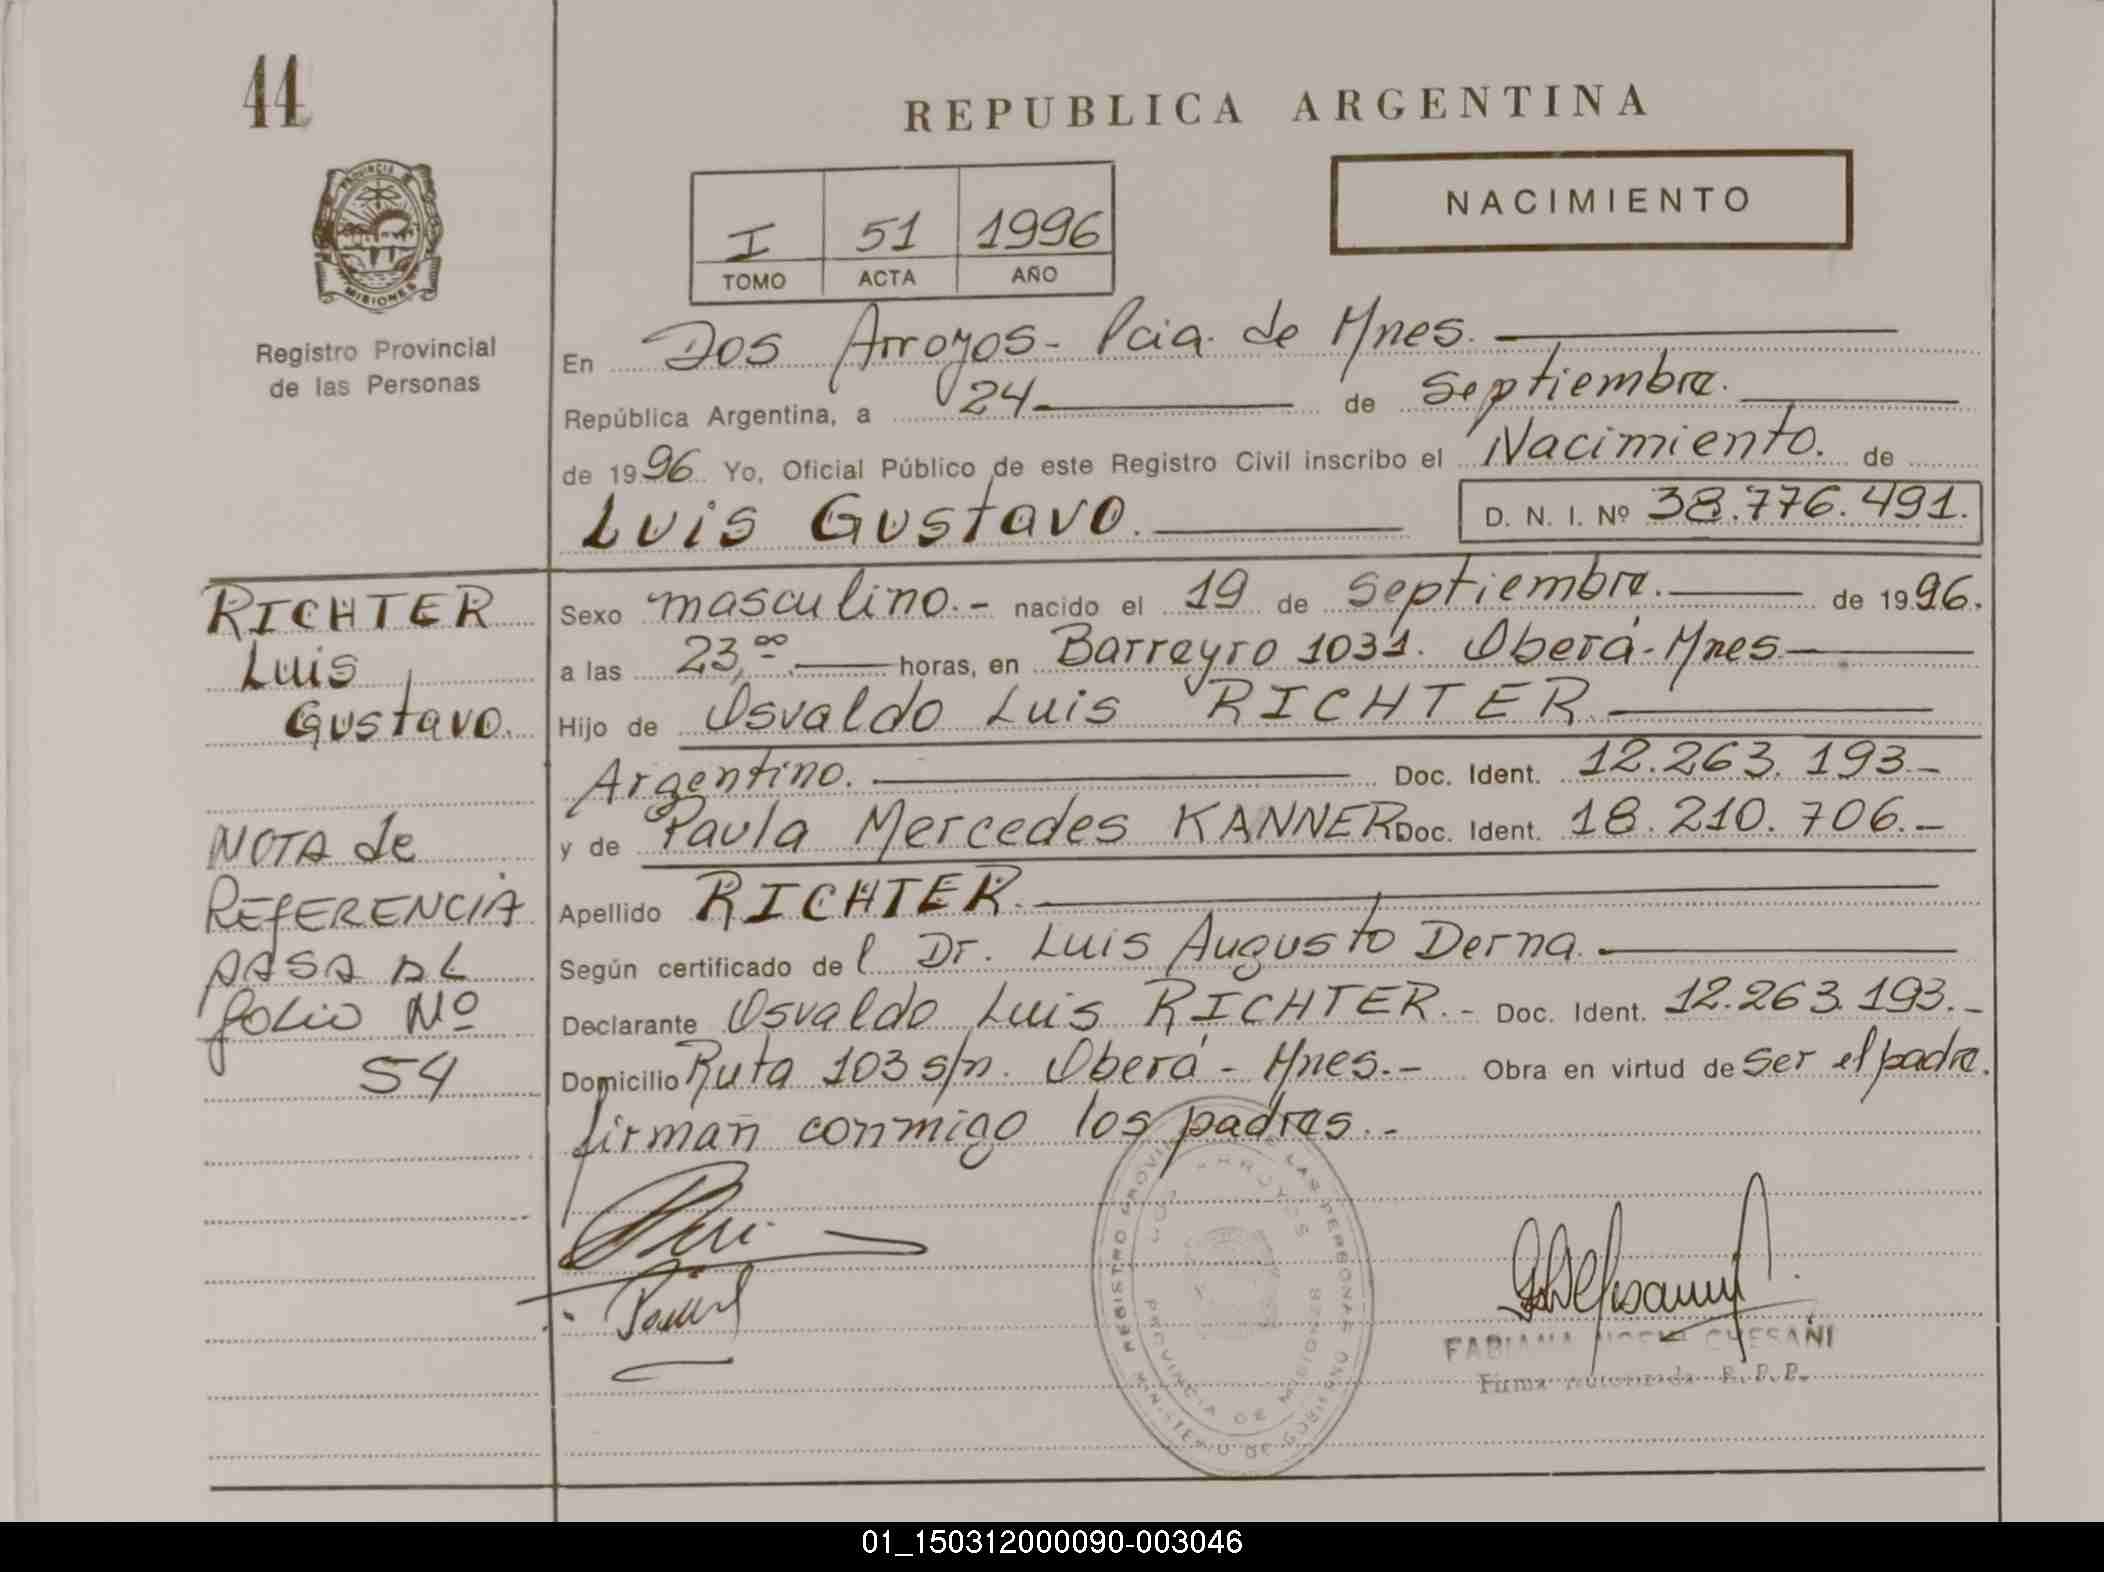 44
REPUBLICA ARGENTINA
NACIMIENTO
I 51 1996
TOMO ACTA AÑO
PROVINCIA DE
MISIONES
Registro Provincial
de las Personas
En Dos Arroyos- Pcia. de Mnes.
República Argentina, a 24 de Septiembre.
de 1996. Yo, Oficial Público de este Registro Civil inscribo el Nacimiento. de
Luis Gustavo. D. N. I. Nº 38.776.491.
RICHTER
Luis
Gustavo.
NOTA de
REFERENCIA
PASA AL
folio Nº
54
Sexo masculino.- nacido el 19 de Septiembre. de 1996.
a las 23,00. horas, en Barreyro 1031. Oberá-Mnes
Hijo de Osvaldo Luis RICHTER
Argentino. Doc. Ident. 12.263.193.-
y de Paula Mercedes KANNER Doc. Ident. 18.210.706.-
Apellido RICHTER.
Según certificado del Dr. Luis Augusto Derna.
Declarante Osvaldo Luis RICHTER.- Doc. Ident. 12.263.193.-
Domicilio Ruta 103 s/n. Oberá - Mnes.- Obra en virtud de ser el padre.
firman conmigo los padres.-
REGISTRO PROVINCIAL DE LAS PERSONAS
MINISTERIO DE GOBIERNO
DOS ARROYOS
PROVINCIA DE MISIONES
FABIANA NOEMI CHESANI
Firma Autorizada R.P.P.
01_150312000090-003046